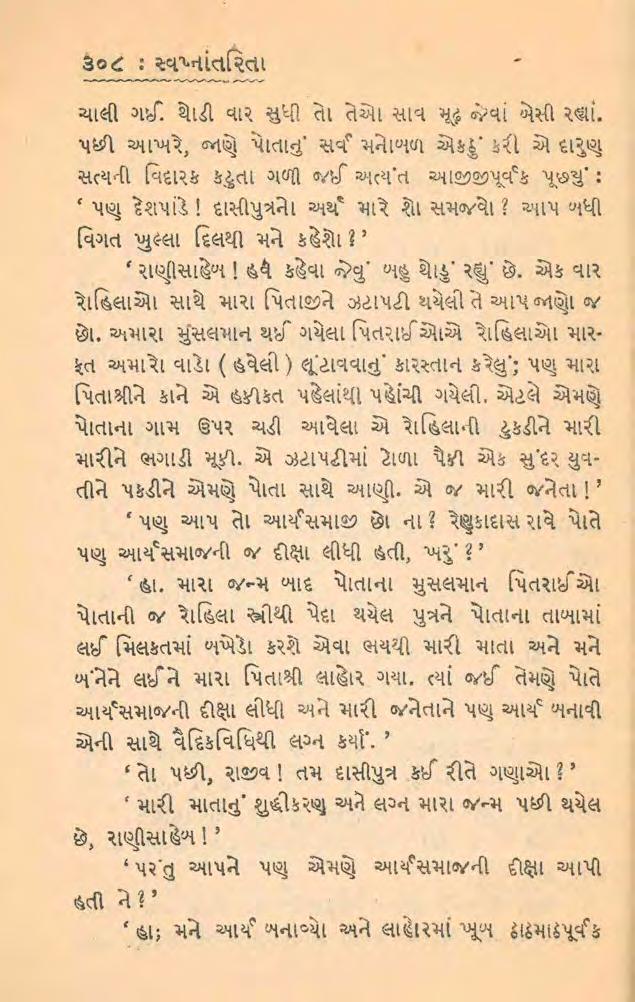 ૩૦૮ : સ્વપ્નાંતરિતા
ચાલી ગઈ. થોડી વાર સુધી તો તેઓ સાવ મૂઢ જેવાં બેસી રહ્યાં.
પછી આખરે, જાણે પોતાનું સર્વ મનોબળ એકઠું કરી એ દારુણ
સત્યની વિદારક કટુતા ગળી જઈ અત્યંત આજીજીપૂર્વક પૂછયું :
‘ પણ દેશપાંડે ! દાસીપુત્રનો અર્થ મારે શો સમજવો ? આપ બધી
વિગત ખુલ્લા દિલથી મને કહેશો ? ’
‘ રાણીસાહેબ ! હવે કહેવા જેવું બહુ થોડું રહ્યું છે. એક વાર
રોહિલાઓ સાથે મારા પિતાજીને ઝટાપટી થયેલી તે આપ જાણો જ
છો. અમારા મુસલમાન થઈ ગયેલા પિતરાઈઓએ રોહિલાઓ માર-
ફત અમારો વાડો ( હવેલી ) લૂંટાવવાનું કારસ્તાન કરેલું; પણ મારા
પિતાશ્રીને કાને એ હકીકત પહેલાંથી પહોંચી ગયેલી. એટલે એમણે
પોતાના ગામ ઉપર ચડી આવેલા એ રોહિલાની ટુકડીને મારી
મારીને ભગાડી મૂકી. એ ઝટાપટીમાં ટોળા પૈકી એક સુંદર યુવ-
તીને પકડીને એમણે પોતા સાથે આણી. એ જ મારી જનેતા ! ’
‘ પણ આપ તો આર્યસમાજી છો ના ? રેણુકાદાસ રાવે પોતે
પણ આર્યસમાજની જ દીક્ષા લીધી હતી, ખરું ? ’
‘ હા. મારા જન્મ બાદ પોતાના મુસલમાન પિતરાઈઓ
પોતાની જ રોહિલા સ્ત્રીથી પેદા થયેલ પુત્રને પોતાના તાબામાં
લઈ મિલકતમાં બખેડો કરશે એવા ભયથી મારી માતા અને મને
બંનેને લઈને મારા પિતાશ્રી લાહોર ગયા. ત્યાં જઈ તેમણે પોતે
આર્યસમાજની દીક્ષા લીધી અને મારી જનેતાને પણ આર્ય બનાવી
એની સાથે વૈદિકવિધિથી લગ્ન કર્યાં. ’
‘ તો પછી, રાજીવ ! તમ દાસીપુત્ર કઈ રીતે ગણાઓ ? ’
‘ મારી માતાનું શુદ્ધીકરણ અને લગ્ન મારા જન્મ પછી થયેલ
છે, રાણીસાહેબ ! ’
‘ પરંતુ આપને પણ એમણે આર્યસમાજની દીક્ષા આપી
હતી ને ? ’
‘ હા; મને આર્ય બનાવ્યો અને લાહોરમાં ખૂબ ઠાઠમાઠપૂર્વક